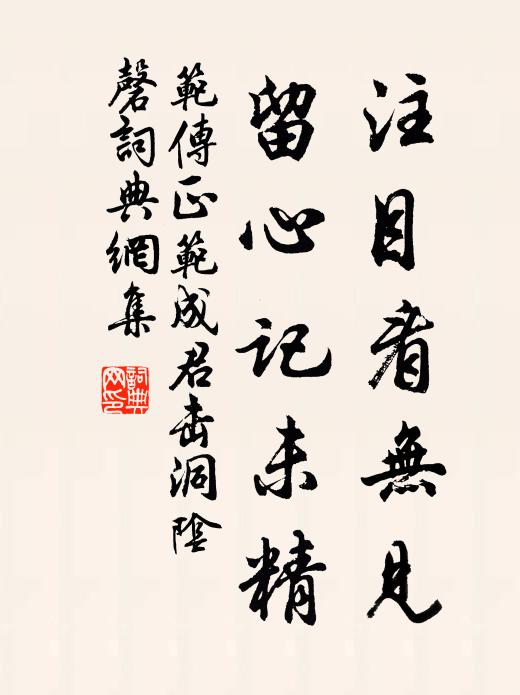 注目看無見
留心記未精
範傳正範成君击洞陰
磬詞典網集
詞典